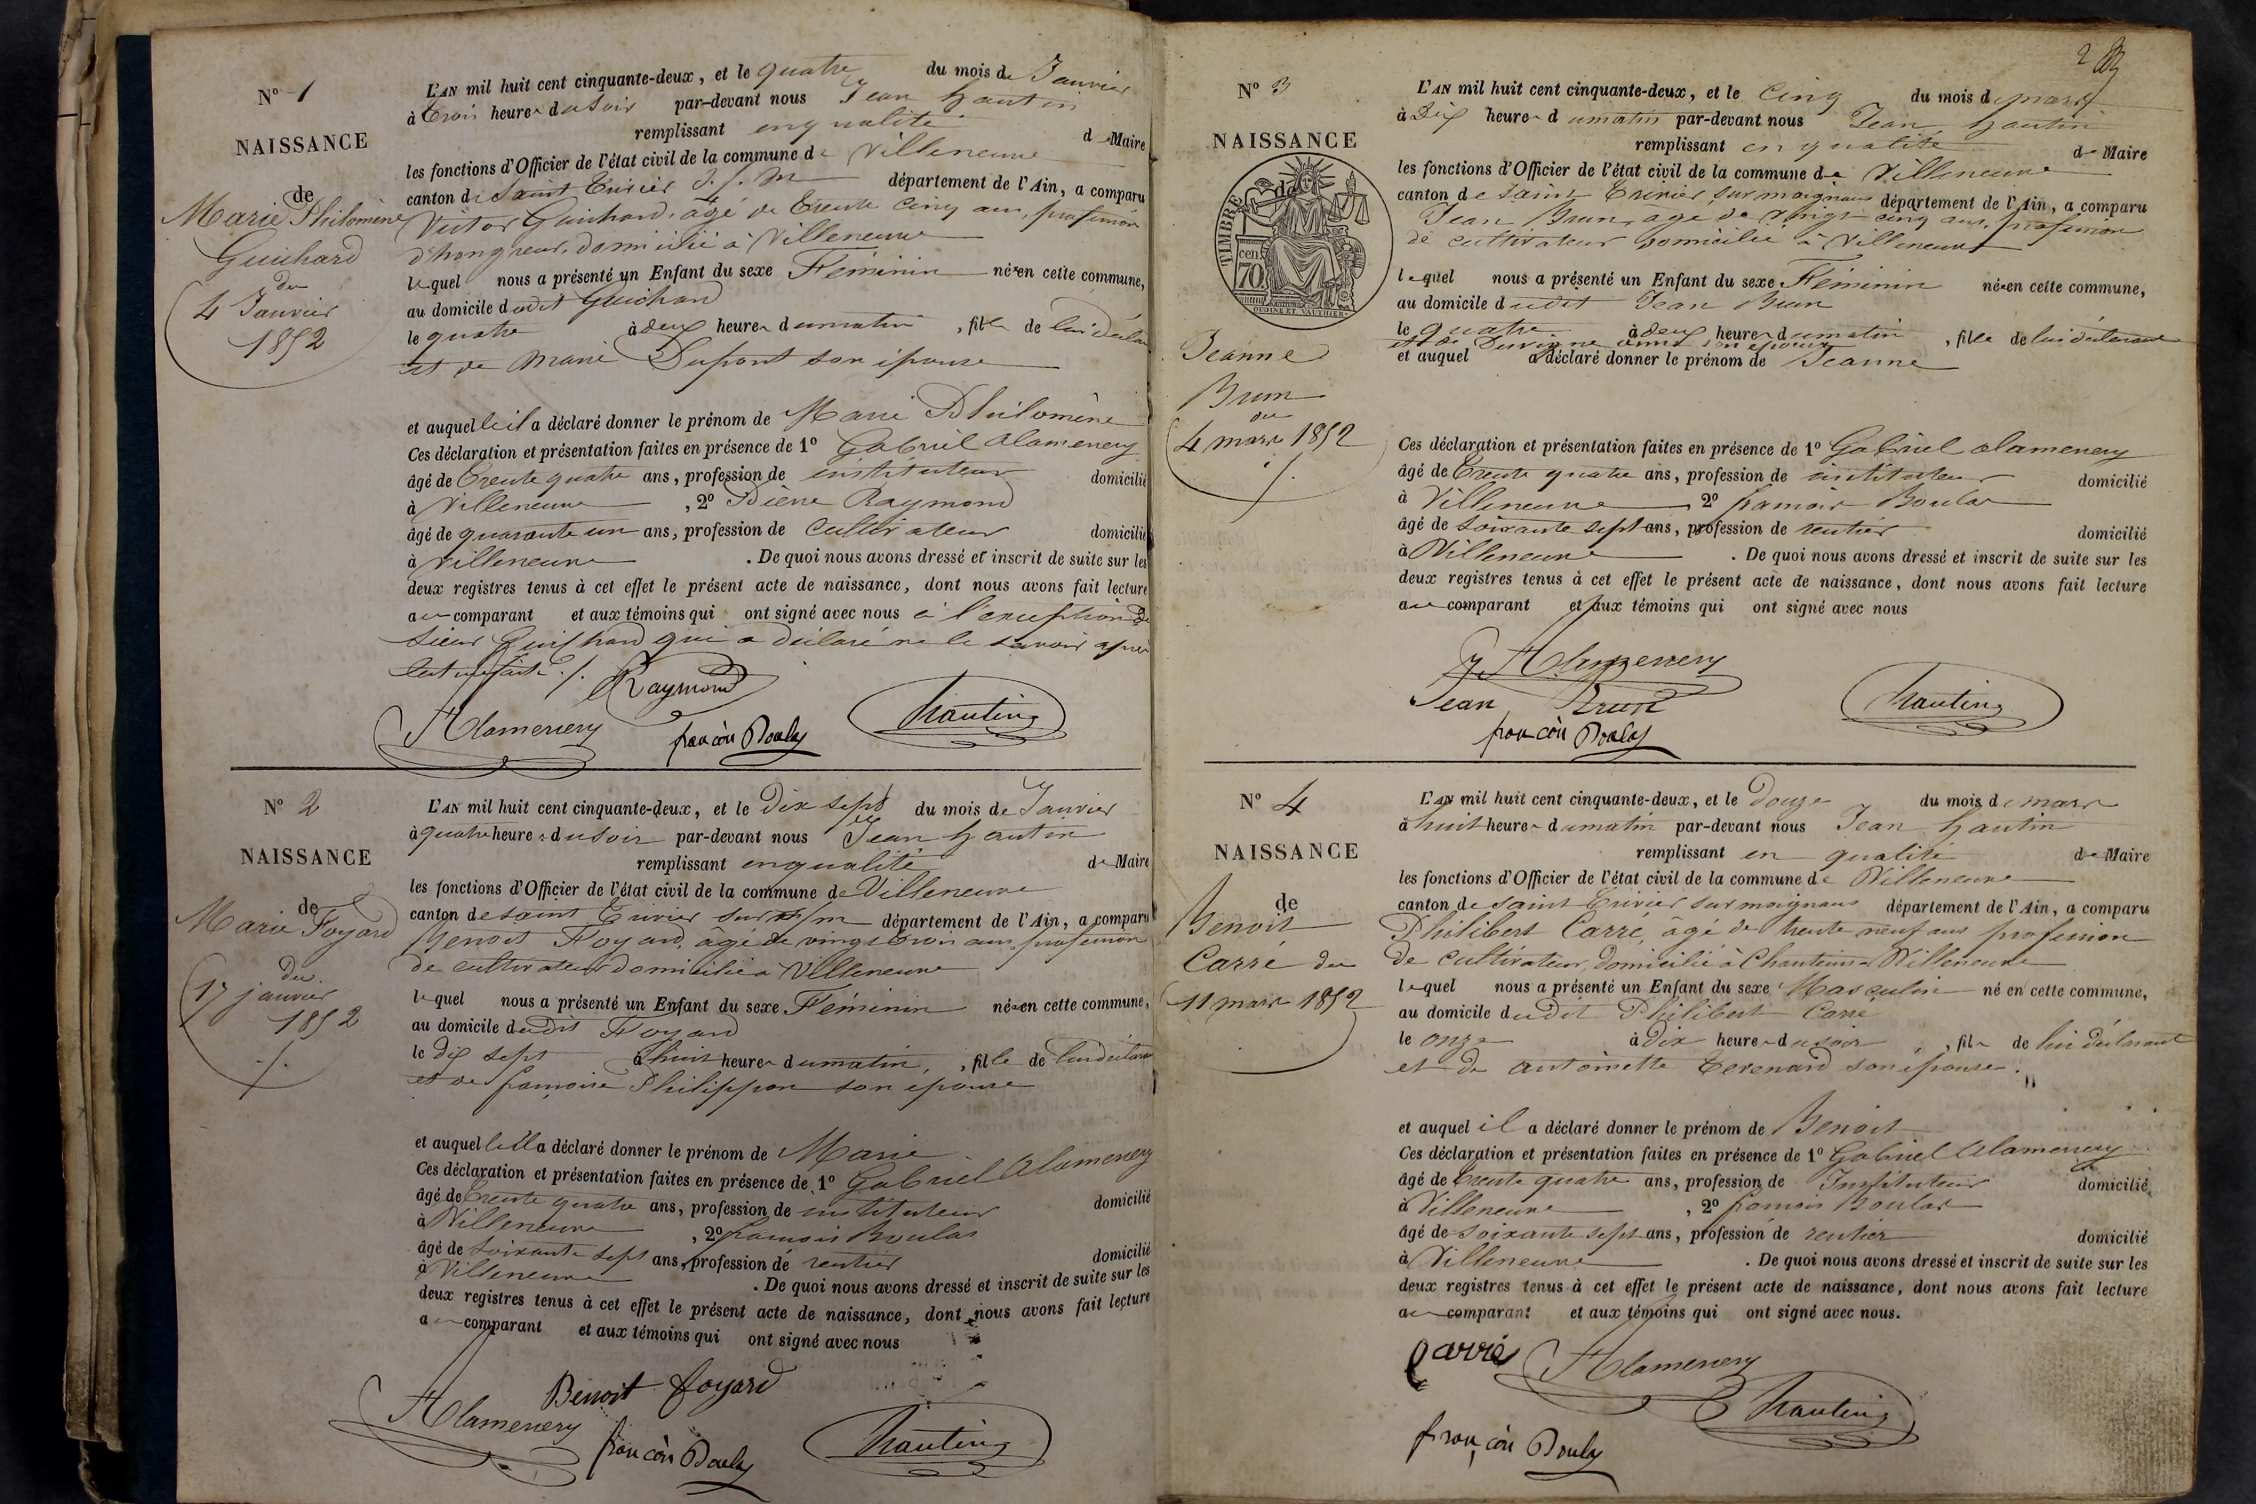 N° 1
NAISSANCE
de
Marie Philomène
Guichard
du
4 Janvier
1852
L'AN mil huit cent cinquante-deux, et le quatre du mois de Janvier
à trois heures du soir par-devant nous Jean hautin
remplissant en qualité de Maire
les fonctions d'Officier de l'état civil de la commune de Villeneuve
canton de Saint Trivier s. m département de l'Ain, a comparu
Victor Guichard, âgé de trente cinq ans, profession
d'hongreur, domicilié à Villeneuve
lequel nous a présenté un Enfant du sexe Féminin née en cette commune,
au domicile dudit Guichard
le quatre à deux heures du matin, fille de lui déclar
et de Marie Dupont son épouse
et auquelle il a déclaré donner le prénom de Marie Philomène
Ces déclaration et présentation faites en présence de 1° Gabriel Alamenery
âgé de trente quatre ans, profession de instituteur domicilié
à Villeneuve, 2° Pierre Raymond
âgé de quarante un ans, profession de cultivateur domicilié
à Villeneuve. De quoi nous avons dressé et inscrit de suite sur les
deux registres tenus à cet effet le présent acte de naissance, dont nous avons fait lecture
au comparant et aux témoins qui ont signé avec nous à l'exception de
sieur Guichard qui a déclaré ne le savoir après
lecture faite ./.
Raymond
Alamenery
françois Boulas
hautin
N° 2
NAISSANCE
de
Marie Foyard
du
17 janvier
1852
L'AN mil huit cent cinquante-deux, et le dix sept du mois de Janvier
à quatre heures du soir par-devant nous Jean hautin
remplissant en qualité de Maire
les fonctions d'Officier de l'état civil de la commune de Villeneuve
canton de saint Trivier sur m département de l'Ain, a comparu
Benoit Foyard, âgé de vingt trois ans profession
de cultivateur domicilié à Villeneuve
lequel nous a présenté un Enfant du sexe Féminin née en cette commune,
au domicile dudit Foyard
le dix sept à huit heures du matin, fille de lui déclarant
et de françoise Philippon son épouse
et auquelle il a déclaré donner le prénom de Marie
Ces déclaration et présentation faites en présence de 1° Gabriel Alamenery
âgé de trente quatre ans, profession de instituteur domicilié
à Villeneuve, 2° françois Boulas
âgé de soixante sept ans, profession de rentier domicilié
à Villeneuve. De quoi nous avons dressé et inscrit de suite sur les
deux registres tenus à cet effet le présent acte de naissance, dont nous avons fait lecture
au comparant et aux témoins qui ont signé avec nous
Benoit foyard
Alamenery
françois Boulas
hautin
2
N° 3
NAISSANCE
de
TIMBRE
70 cen
OUDINE ET VAUTHIER
Jeanne
Brun
du
4 mars 1852
./.
L'AN mil huit cent cinquante-deux, et le cinq du mois de mars
à dix heures du matin par-devant nous Jean hautin
remplissant en qualité de Maire
les fonctions d'Officier de l'état civil de la commune de Villeneuve
canton de saint Trivier sur moignans département de l'Ain, a comparu
Jean Brun, âgé de vingt cinq ans, profession
de cultivateur domicilié à Villeneuve
lequel nous a présenté un Enfant du sexe Féminin née en cette commune,
au domicile dudit Jean Brun
le quatre à deux heures du matin, fille de lui déclarant
et de son épouse
et auquel a déclaré donner le prénom de Jeanne
Ces déclaration et présentation faites en présence de 1° Gabriel Alamenery
âgé de trente quatre ans, profession de instituteur domicilié
à Villeneuve, 2° françois Boulas
âgé de soixante sept ans, profession de rentier domicilié
à Villeneuve. De quoi nous avons dressé et inscrit de suite sur les
deux registres tenus à cet effet le présent acte de naissance, dont nous avons fait lecture
au comparant et aux témoins qui ont signé avec nous
Alamenery
Jean Brun
françois Boulas
hautin
N° 4
NAISSANCE
de
Benoit
Carré du
11 mars 1852
L'AN mil huit cent cinquante-deux, et le douze du mois de mars
à huit heures du matin par-devant nous Jean hautin
remplissant en qualité de Maire
les fonctions d'Officier de l'état civil de la commune de Villeneuve
canton de saint Trivier sur moignans département de l'Ain, a comparu
Philibert Carré, âgé de trente neuf ans profession
de cultivateur, domicilié à Villeneuve
lequel nous a présenté un Enfant du sexe Masculin né en cette commune,
au domicile dudit Philibert Carré
le onze à dix heures du soir, fils de lui déclarant
et de antoinette Terenard son épouse.
et auquel il a déclaré donner le prénom de Benoit
Ces déclaration et présentation faites en présence de 1° Gabriel Alamenery
âgé de trente quatre ans, profession de Instituteur domicilié
à Villeneuve, 2° françois Boulas
âgé de soixante sept ans, profession de rentier domicilié
à Villeneuve. De quoi nous avons dressé et inscrit de suite sur les
deux registres tenus à cet effet le présent acte de naissance, dont nous avons fait lecture
au comparant et aux témoins qui ont signé avec nous.
Carré
Alamenery
hautin
françois Boulas